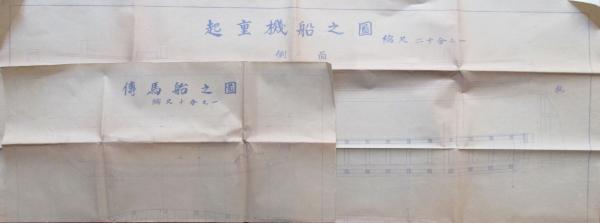 起重機船之圖
縮尺二十分之一
側面
傳馬船之圖
縮尺十分之一